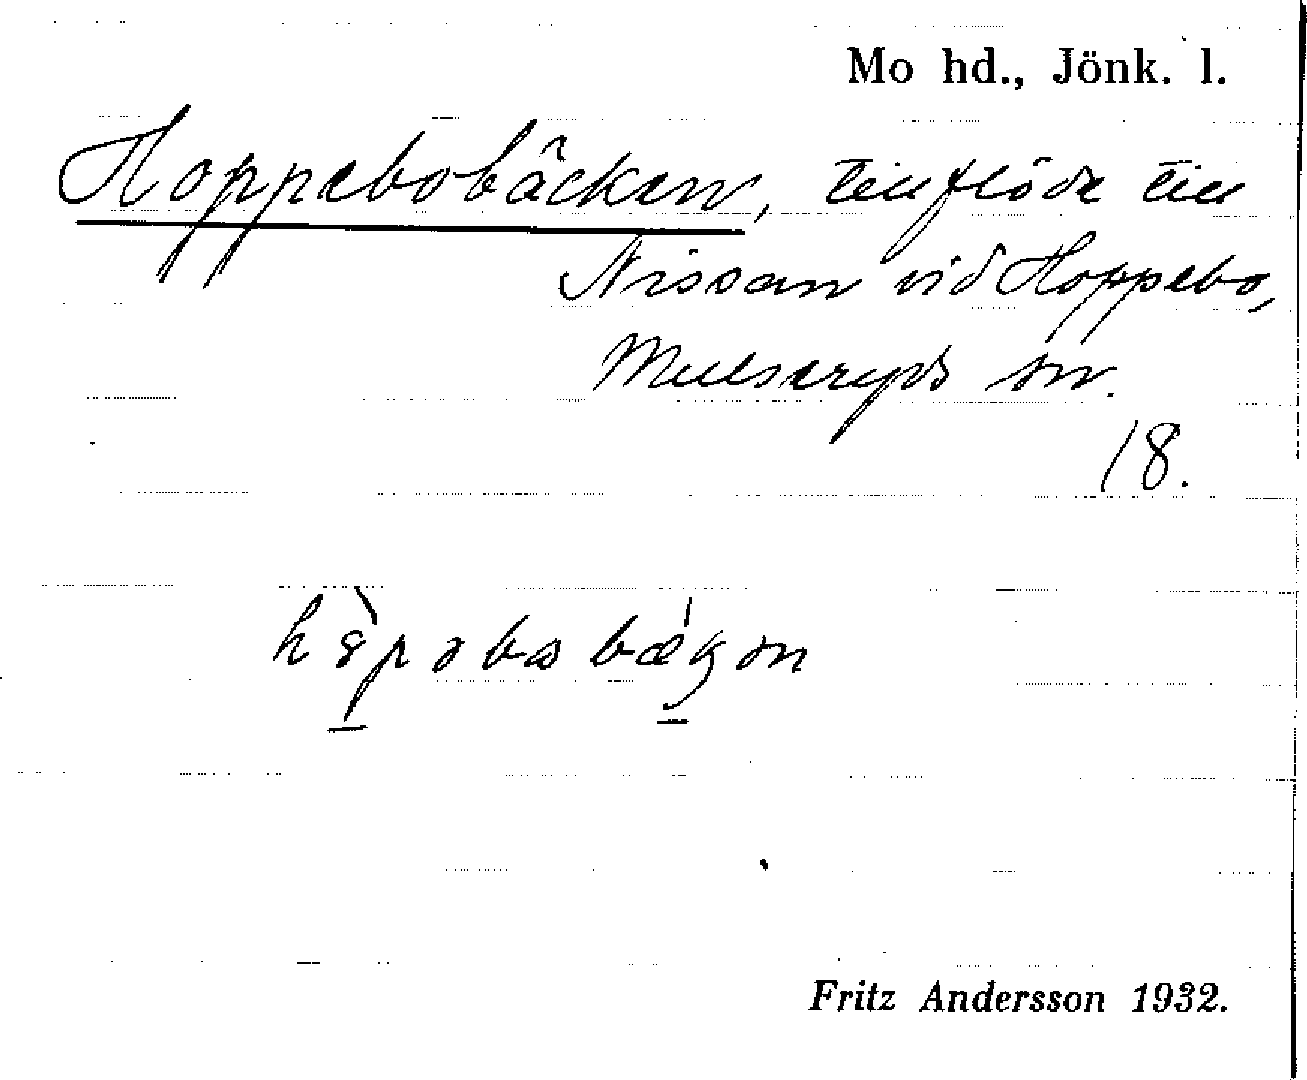 Mo hd., Jönk. l.
Hoppebobäcken, tillflöde till
Nissan vid Hoppebo,
Mulseryds sn.
18.
Fritz Andersson 1932.